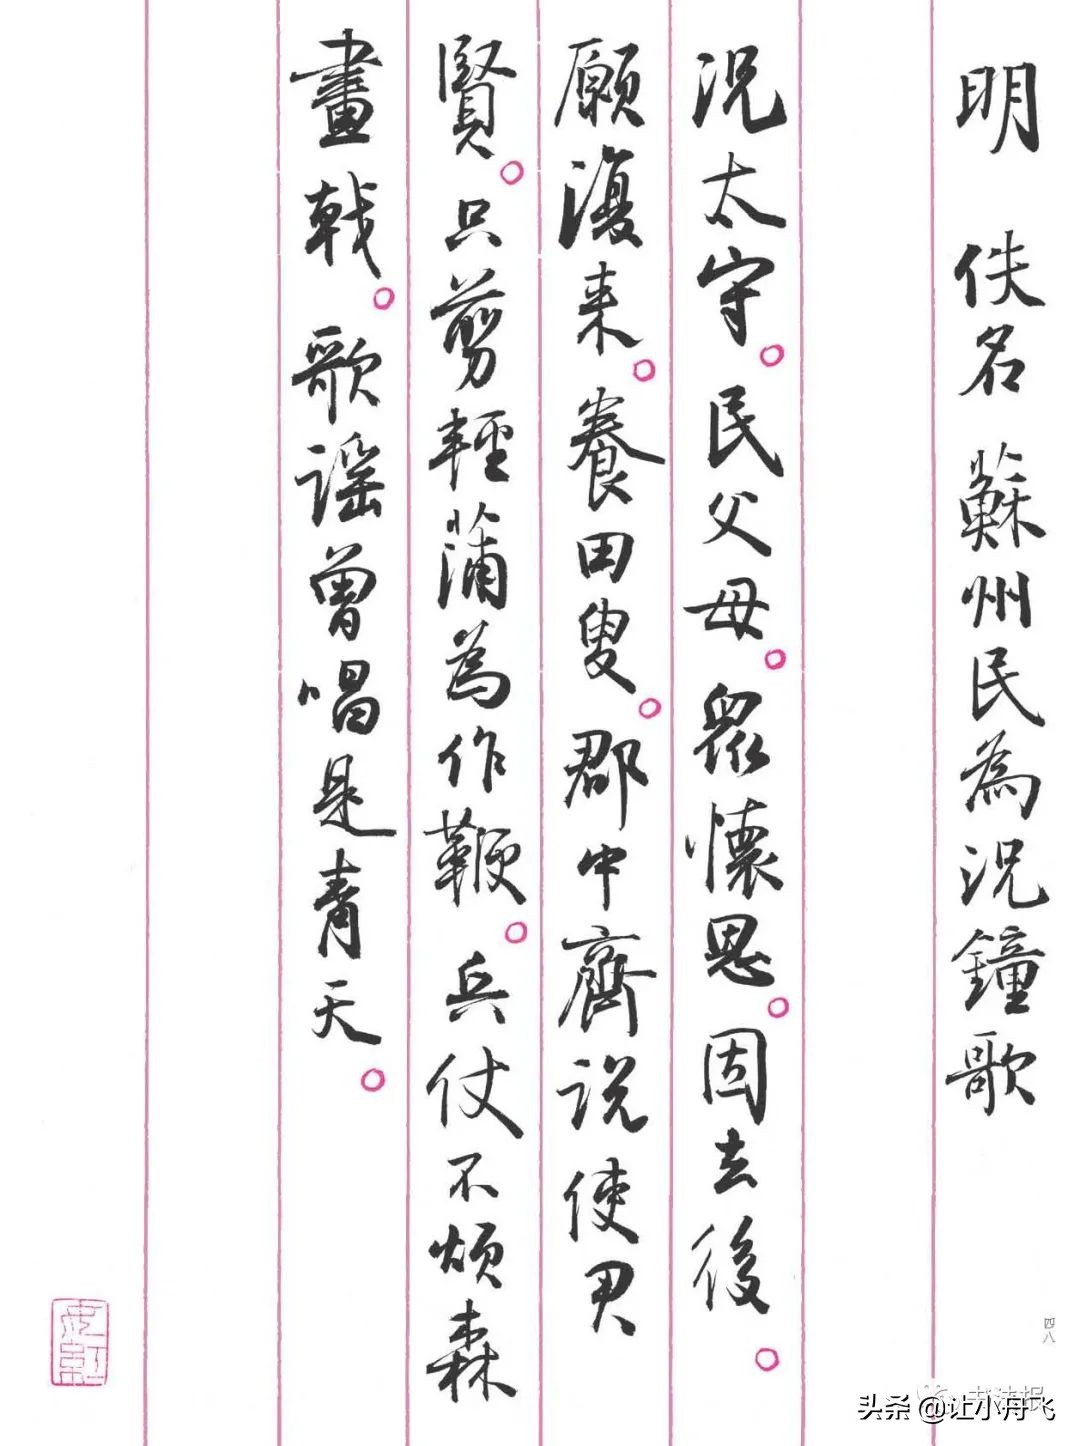 明 佚名 蘇州民為況鐘歌
況太守。民父母。眾懷思。因去後。
願復来。養田叟。郡中齊説使君
賢。只剪輕蒲為作鞭。兵仗不煩森
畫戟。歌謡曾唱是青天。
四八
书法报
头条 @让小舟飞